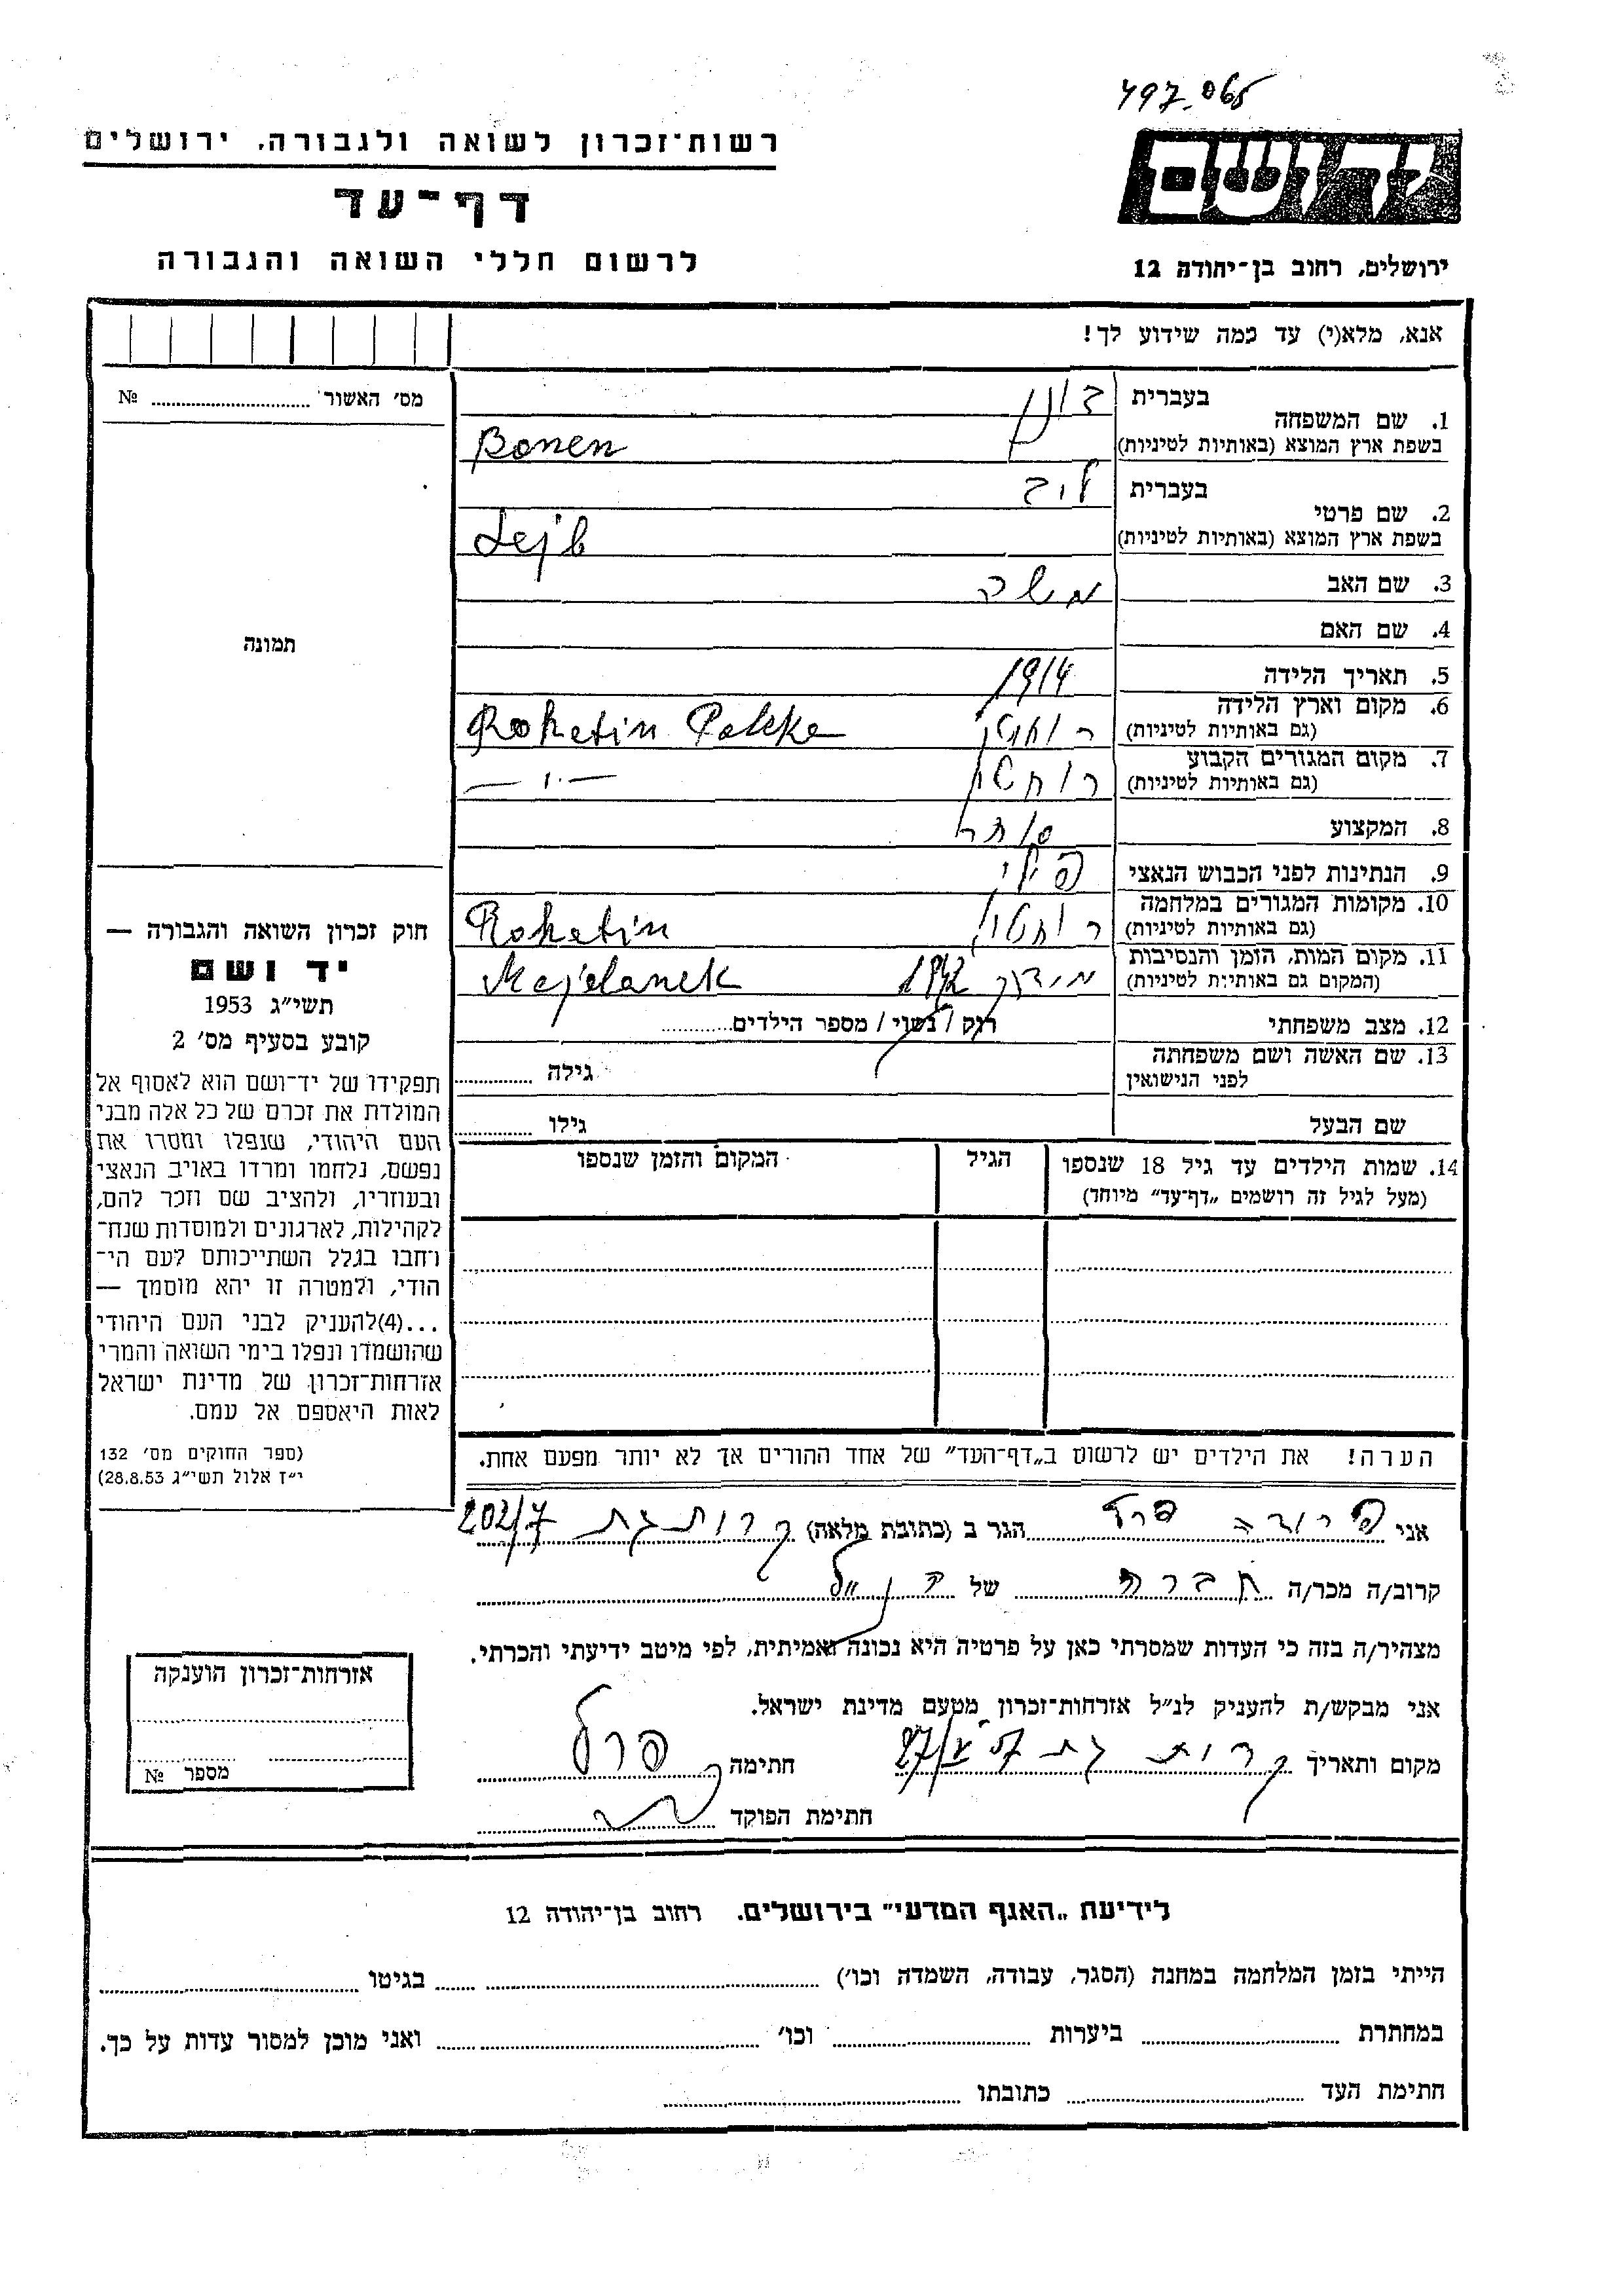 497.065
רשות־זכרון לשואה ולגבורה, ירושלים
יד ושם
דף־עד
לרשום חללי השואה והגבורה
ירושלים, רחוב בן־יהודה 12
אנא, מלא(י) עד כמה שידוע לך!
מס׳ האשור № 
1. שם המשפחה בעברית
בשפת ארץ המוצא (באותיות לטיניות) Bonen
2. שם פרטי בעברית ליב
בשפת ארץ המוצא (באותיות לטיניות) Lejb
3. שם האב משה
4. שם האם
תמונה
5. תאריך הלידה 1914
6. מקום וארץ הלידה
(גם באותיות לטיניות) רוהטין Rohatin
7. מקום המגורים הקבוע
(גם באותיות לטיניות) רוחטין —〃—
8. המקצוע סוחר
9. הנתינות לפני הכבוש הנאצי פולני
10. מקומות המגורים במלחמה
(גם באותיות לטיניות) רוחטין Rohatin
11. מקום המות, הזמן והנסיבות
(המקום גם באותיות לטיניות) 1942 Majdanek
12. מצב משפחתי רוק / נשוי / מספר הילדים
13. שם האשה ושם משפחתה
לפני הנישואין גילה
שם הבעל גילו
14. שמות הילדים עד גיל 18 שנספו הגיל המקום והזמן שנספו
(מעל לגיל זה רושמים „דף־עד״ מיוחד)
חוק זכרון השואה והגבורה —
יד ושם
תשי״ג 1953
קובע בסעיף מס׳ 2
תפקידו של יד־ושם הוא לאסוף אל
המולדת את זכרם של כל אלה מבני
העם היהודי, שנפלו ומסרו את
נפשם, נלחמו ומרדו באויב הנאצי
ובעוזריו, ולהציב שם וזכר להם,
לקהילות, לארגונים ולמוסדות שנח־
רחבו בגלל השתייכותם לעם הי־
הודי, ולמטרה זו יהא מוסמך —
...(4)להעניק לבני העם היהודי
שהושמדו ונפלו בימי השואה והמרי
אזרחות־זכרון של מדינת ישראל
לאות היאספם אל עמם.
(ספר החוקים מס׳ 132
י״ז אלול תשי״ג 28.8.53)
הערה! את הילדים יש לרשום ב„דף־העד״ של אחד ההורים אך לא יותר מפעם אחת.
אני פרל הגר ב (כתובת מלאה) קרית גת 202/7
קרוב/ה מכר/ה חברה של
מצהיר/ה בזה כי העדות שמסרתי כאן על פרטיה היא נכונה ואמיתית, לפי מיטב ידיעתי והכרתי.
אני מבקש/ת להעניק לנ״ל אזרחות־זכרון מטעם מדינת ישראל.
מקום ותאריך קרית גת חתימה פרל
חתימת הפוקד
אזרחות־זכרון הוענקה
מספר №
לידיעת „האגף המדעי״ בירושלים, רחוב בן־יהודה 12
הייתי בזמן המלחמה במחנה (הסגר, עבודה, השמדה וכו׳) בגיטו
במחתרת ביערות וכו׳ ואני מוכן למסור עדות על כך.
חתימת העד כתובתו